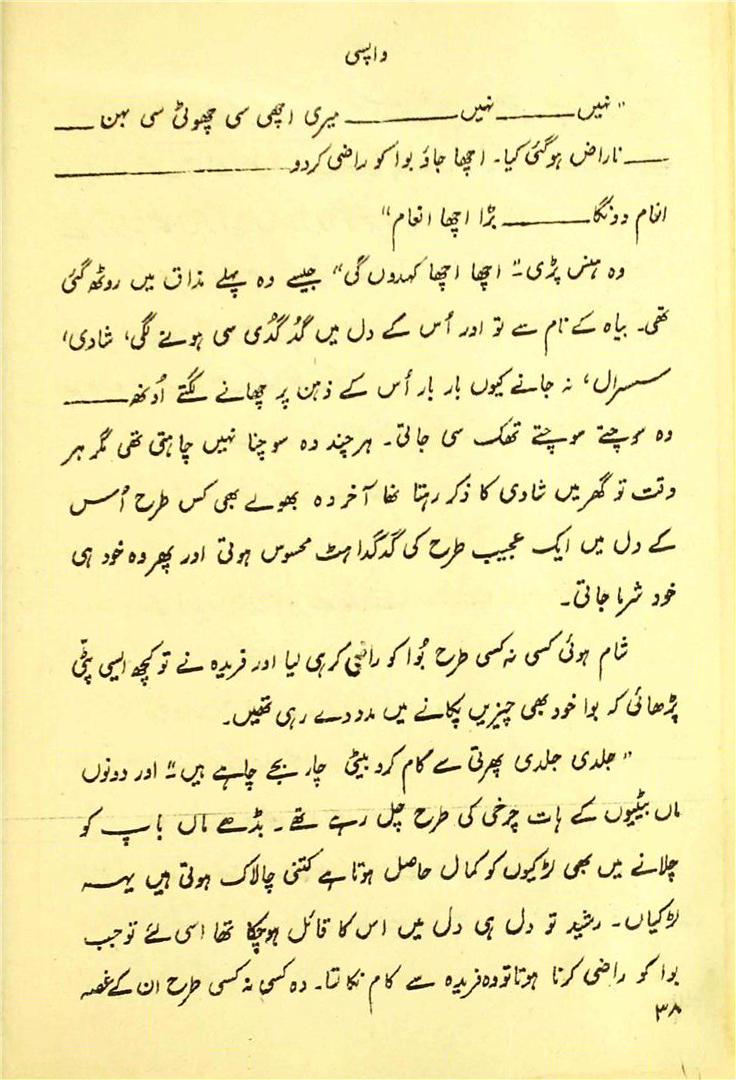 واپسی
"نہیں ــــــ نہیں ــــــــ میری اچھی سی چھوٹی سی بہن ــــ
ــــ ناراض ہوگئی کیا۔ اچھا جاؤ بوا کو راضی کردو ــــــــــــــــ
انعام دونگا ــــــــ بڑا اچھا انعام"
وہ ہنس پڑی۔" اچھا اچھا کہدوں گی" جیسے وہ پہلے مذاق میں روٹھ گئی
تھی۔ بیاہ کے نام سے تو اور اُس کے دل میں گُدگُدی سی ہونے لگی، شادی،
سسرال، نہ جانے کیوں بار بار اُس کے ذہن پر چھانے لگتے اُونھ ــــــ
وہ سوچتے سوچتے تھک سی جاتی۔ ہرچند وہ سوچنا نہیں چاہتی تھی مگر ہر
وقت تو گھر میں شادی کا ذکر رہتا تھا آخر وہ بھولے بھی کس طرح اُس
کے دل میں ایک عجیب طرح کی گدگداہٹ محسوس ہوتی اور پھر وہ خود ہی
خود شرما جاتی۔
شام ہوئی کسی نہ کسی طرح بُوا کو راضی کر ہی لیا اور فریدہ نے تو کچھ ایسی پٹّی
پڑھائی کہ بوا خود بھی چیزیں پکانے میں مدد دے رہی تھیں۔
"جلدی جلدی پھرتی سے کام کرو بیٹی چار بجے چاہے ہیں۔" اور دونوں
ماں بیٹیوں کے ہات چرخی کی طرح چل رہے تھے۔ بڈھے ماں باپ کو
چلانے میں بھی لڑکیوں کو کمال حاصل ہوتا ہے کتنی چالاک ہوتی ہیں یہ
لڑکیاں۔ رشید تو دل ہی دل میں اس کا قائل ہوچکا تھا اسی لئے تو جب
بوا کو راضی کرنا ہوتا تو وہ فریدہ سے کام نکالتا۔ وہ کسی نہ کسی طرح ان کے غصہ
۳۸